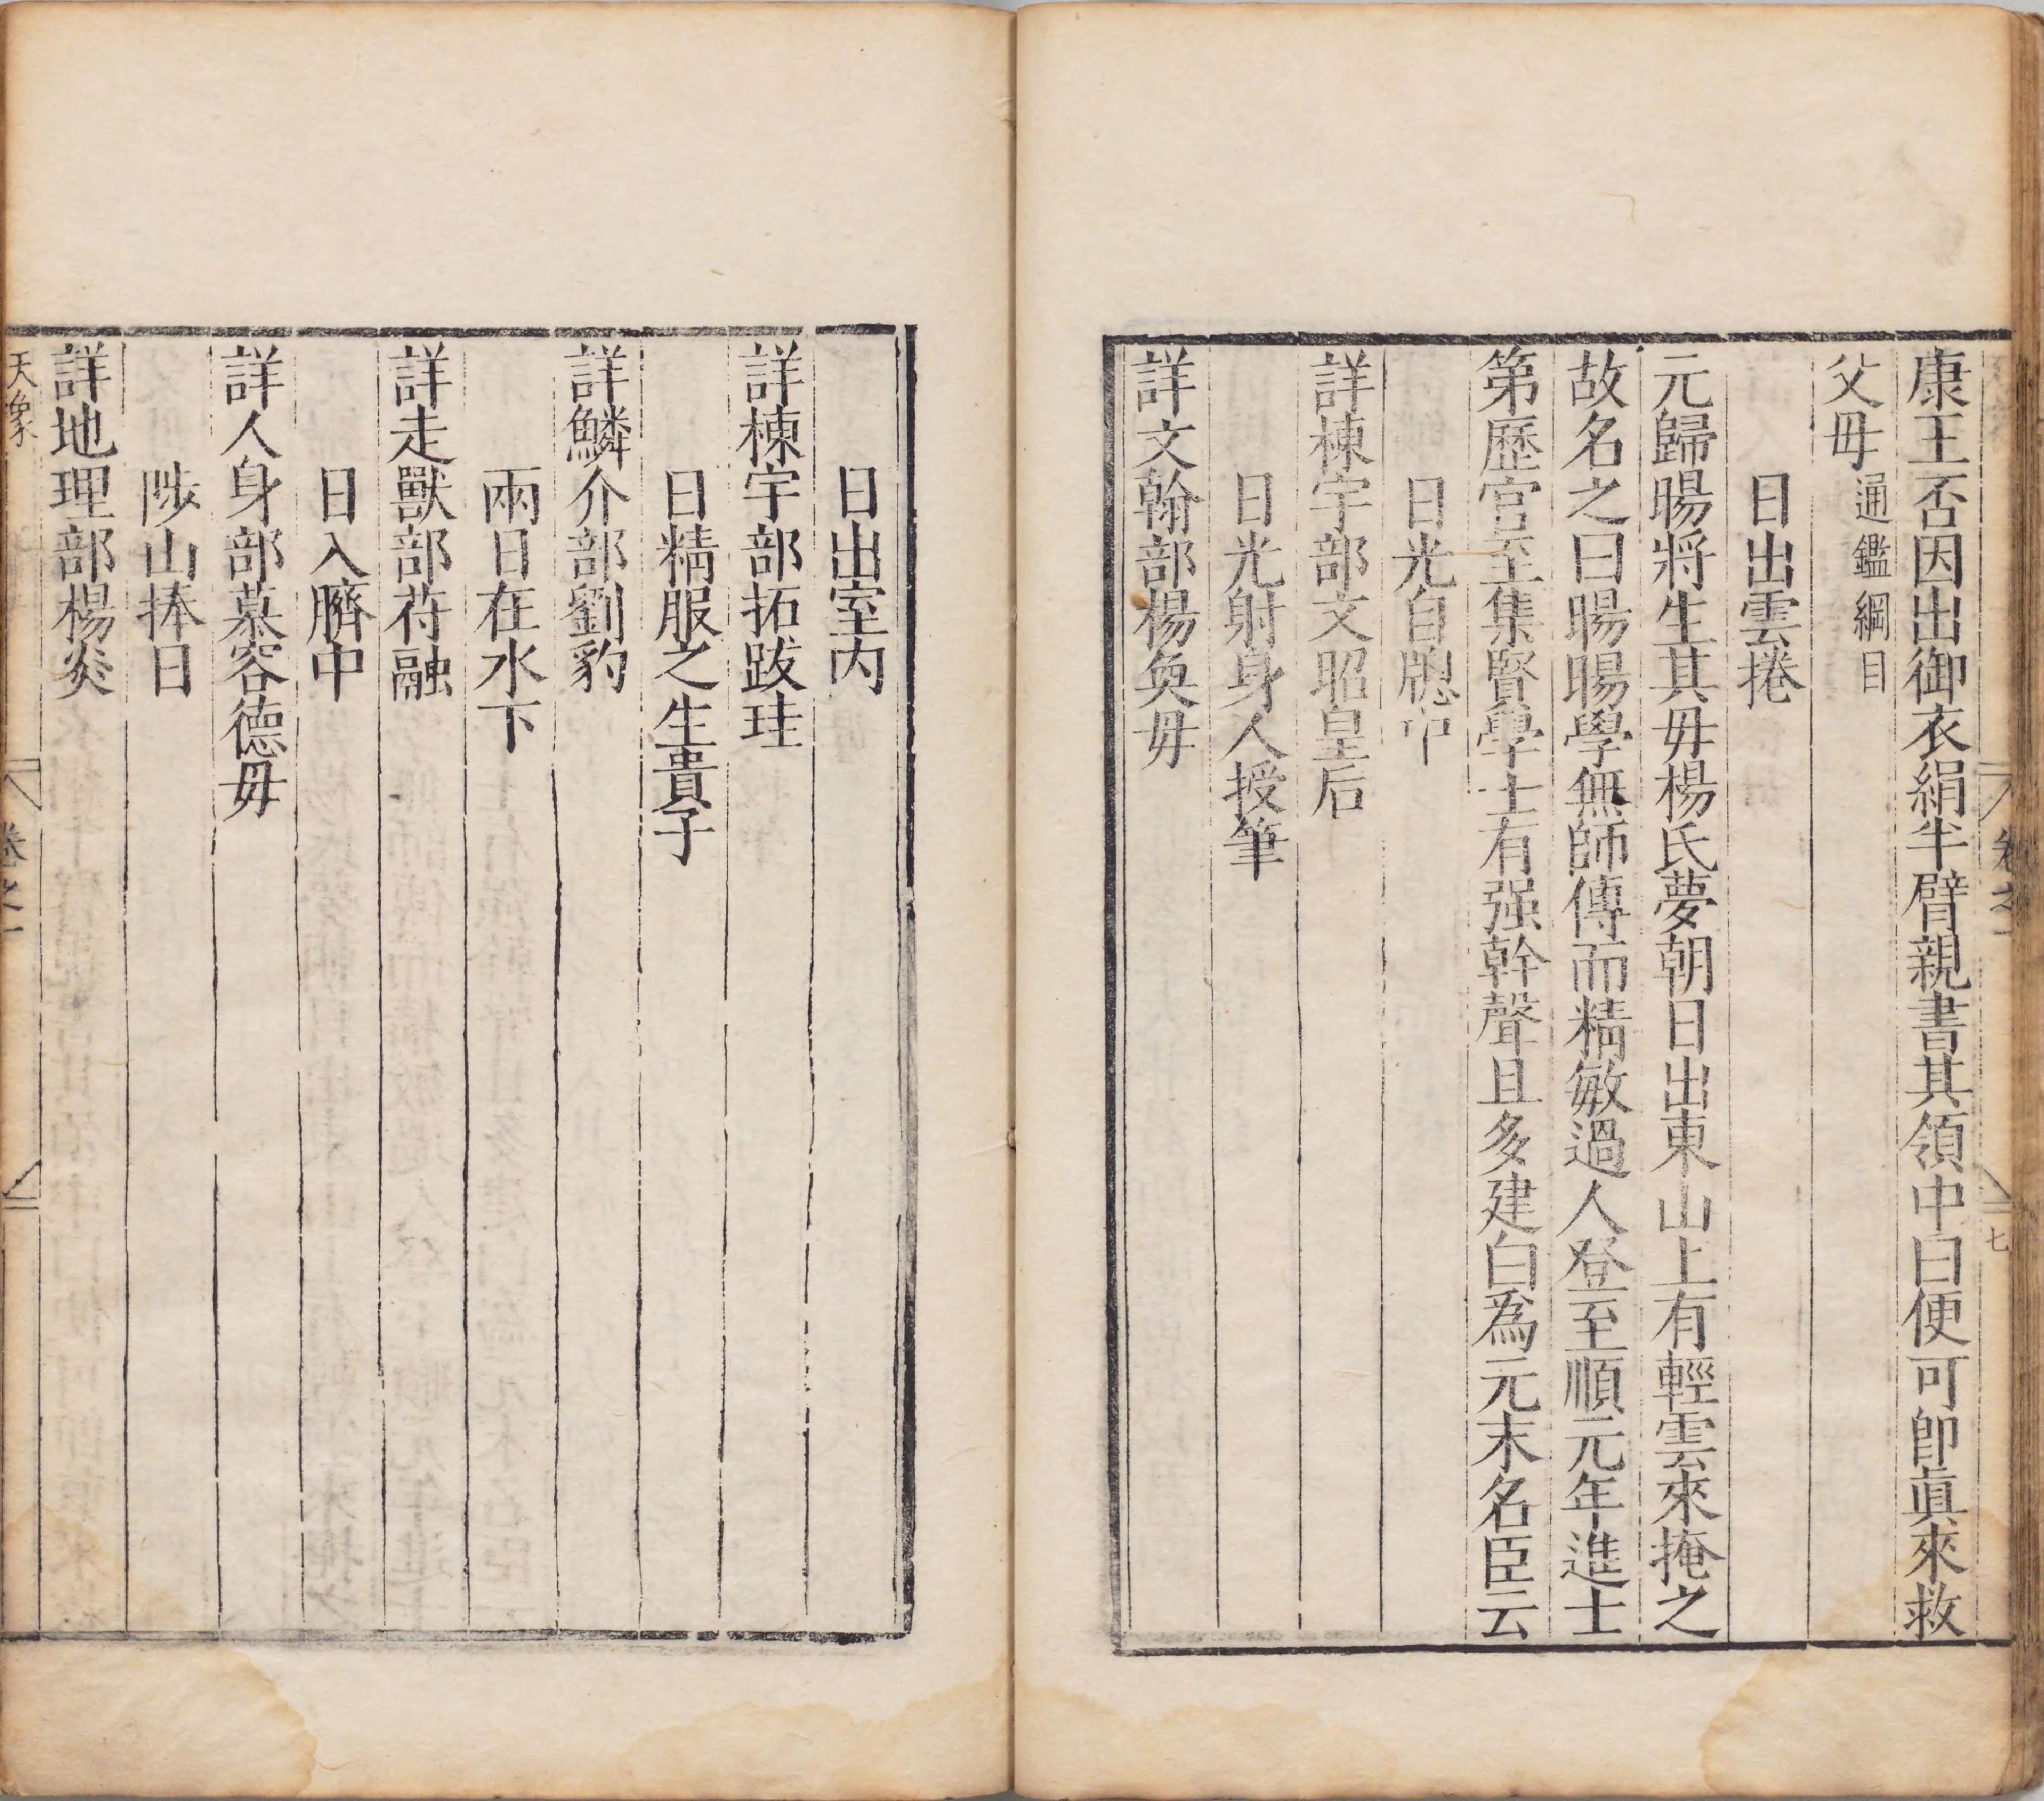 康王否因出御衣絹半臂親書其領中曰便可卽眞來救
父母通鑑綱目
日出雲捲
元歸暘將生其毋楊氏夢朝日出東山上有輕雲來掩之
故名之曰暘暘學無師傳而精敏過人登至順元年進士
第歷官至集賢學士有强幹聲且多建白爲元末名臣云
日光自牎中
詳棟宇部文昭皇后
日光射身人授筆
詳文翰部楊奐毋
卷之一
七
日出室内
詳棟宇部拓跋珪
日精服之生貴子
詳鱗介部劉豹
兩日在水下
詳走獸部苻融
日入臍中
詳人身部慕容德毋
陟山捧日
詳地理部楊炎
天象
卷之一